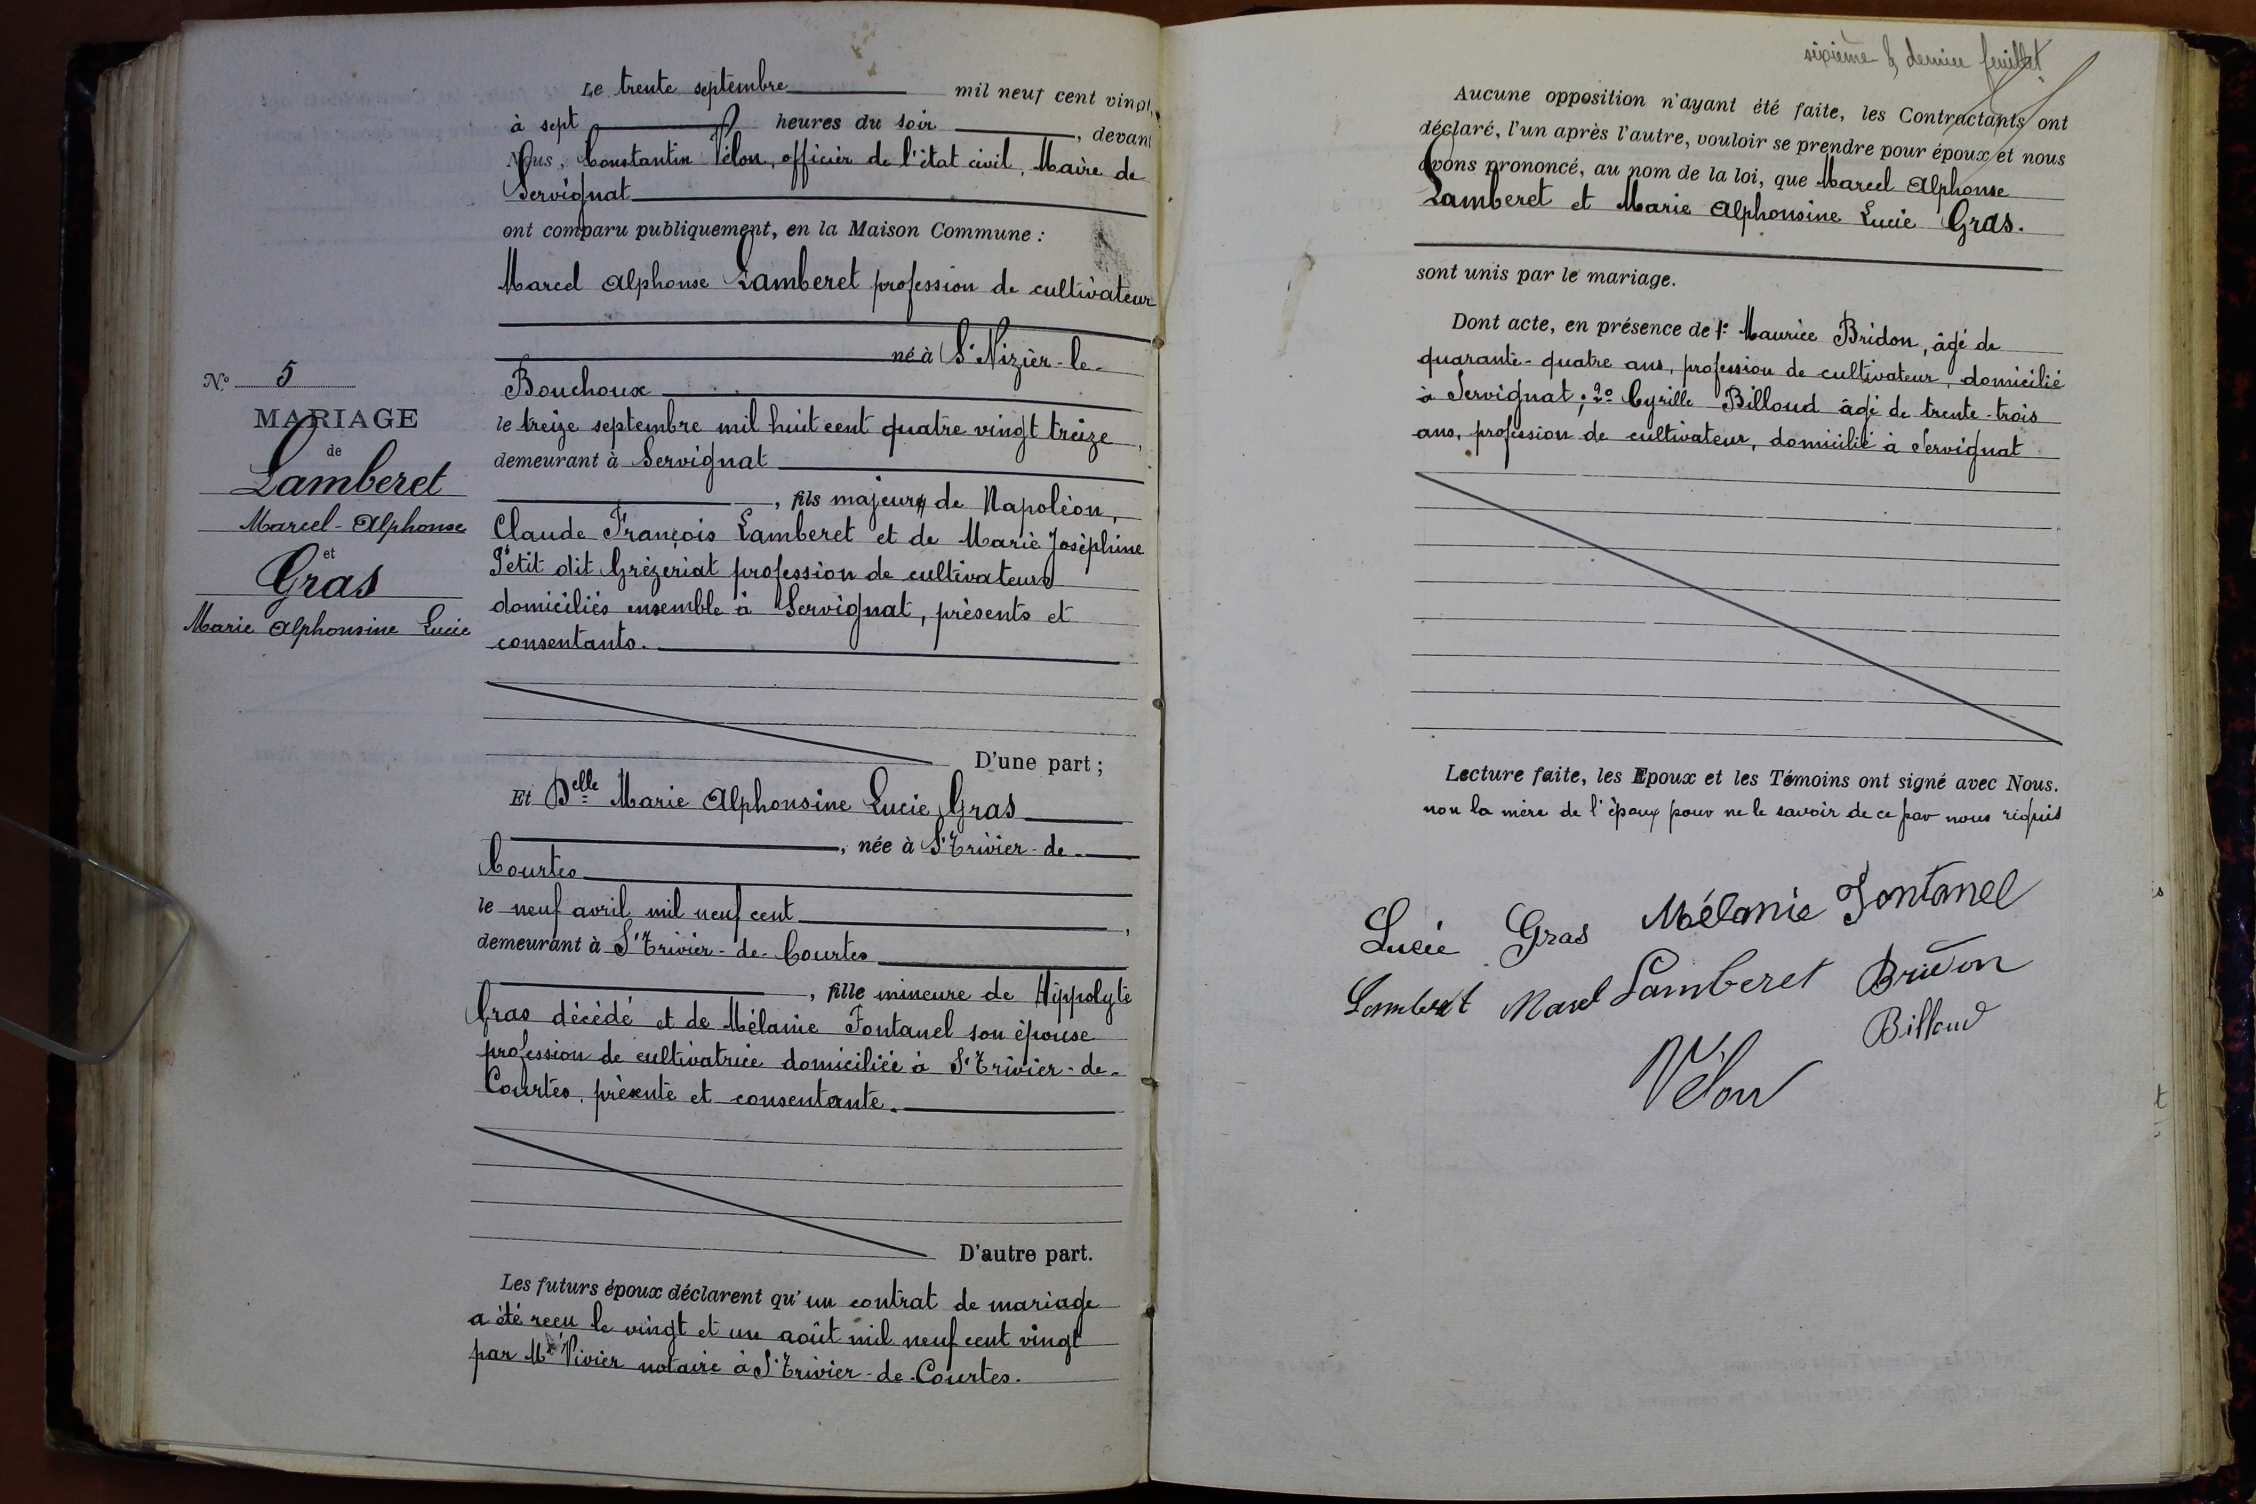 Le trente septembre mil neuf cent vingt,
à sept heures du soir, devant
Nous, Constantin Vélon, officier de l'état civil, Maire de
Servignat
ont comparu publiquement, en la Maison Commune :
Marcel Alphonse Lamberet profession de cultivateur
né à St Nizier-le-
Bouchoux
le treize septembre mil huit cent quatre vingt treize,
demeurant à Servignat
, fils majeur de Napoléon,
Claude François Lamberet et de Marie Joséphine
Petit dit Grézeriat profession de cultivateurs
domiciliés ensemble à Servignat, présents et
consentants.
D'une part ;
Et Delle Marie Alphonsine Lucie Gras
, née à St Trivier-de-
Courtes
le neuf avril mil neuf cent,
demeurant à St Trivier-de-Courtes
, fille mineure de Hippolyte
Gras décédé et de Mélanie Fontanel son épouse
profession de cultivatrice domiciliée à St Trivier-de-
Courtes, présente et consentante.
D'autre part.
Les futurs époux déclarent qu'un contrat de mariage
a été reçu le vingt et un août mil neuf cent vingt
par Me Vivier notaire à St Trivier-de-Courtes.
No 5
MARIAGE
de
Lamberet
Marcel-Alphonse
et
Gras
Marie Alphonsine Lucie
sixième & dernier feuillet
Aucune opposition n'ayant été faite, les Contractants ont
déclaré, l'un après l'autre, vouloir se prendre pour époux et nous
avons prononcé, au nom de la loi, que Marcel Alphonse
Lamberet et Marie Alphonsine Lucie Gras.
sont unis par le mariage.
Dont acte, en présence de 1o Maurice Bridon, âgé de
quarante-quatre ans, profession de cultivateur, domicilié
à Servignat ; 2o Cyrille Billoud âgé de trente-trois
ans, profession de cultivateur, domicilié à Servignat
Lecture faite, les Epoux et les Témoins ont signé avec Nous.
non la mère de l'époux pour ne le savoir de ce par nous réquis
Lucie Gras Mélanie Fontanel
Lamberet Marcel Lamberet Bridon
Billoud
Vélon